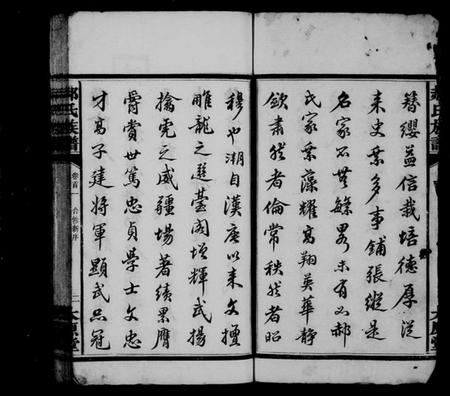 簪纓益信栽培德厚從
來史乘多事鋪張縱是
名家不無緣累未有如郝
氏家乘藻耀高翔英華靜
欽肅然者倫常秩然者昭
穆也溯自漢唐以來文壇
雕龍之選臺閣增輝武揚
擒虎之威疆場著績累膺
爵賞世篤忠貞學士文忠
才高子建將軍顯武品冠
郝氏族譜
卷首
合修新序
二
太原堂